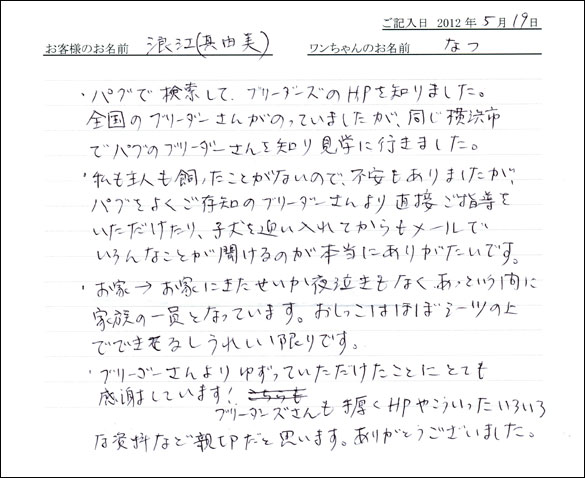 ご記入日 2012年5月19日
お客様のお名前 浪江(真由美) ワンちゃんのお名前 なつ
・パグで検索して、ブリーダーズのHPを知りました。
全国のブリーダーさんがのっていましたが、同じ横浜市
でパグのブリーダーさんを知り見学に行きました。
・私も主人も飼ったことがないので、不安もありましたが、
パグをよくご存知のブリーダーさんより直接ご指導を
いただけたり、子犬を迎い入れてからもメールで
いろんなことが聞けるのが本当にありがたいです。
・お家→お家にきたせいか夜泣きもなくあっという間に
家族の一員となっています。おしっこはほぼシーツの上
でできるしうれしい限りです。
・ブリーダーさんよりゆずっていただけたことにとても
感謝しています! こちらも
ブリーダーズさんも手厚くHPやこういったいろいろ
な資料など親切だと思います。ありがとうございました。